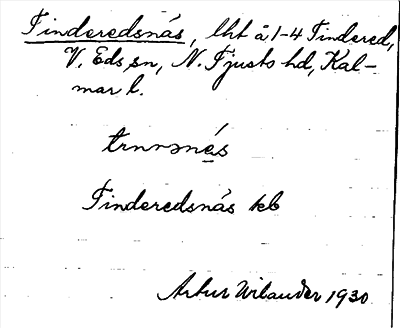 Tinderedsnäs, lht å 1-4 Tindered,
V. Eds sn, N. Tjusts hd, Kal-
mar l.
Tinderedsnäs kb
Artur Wilander 1930